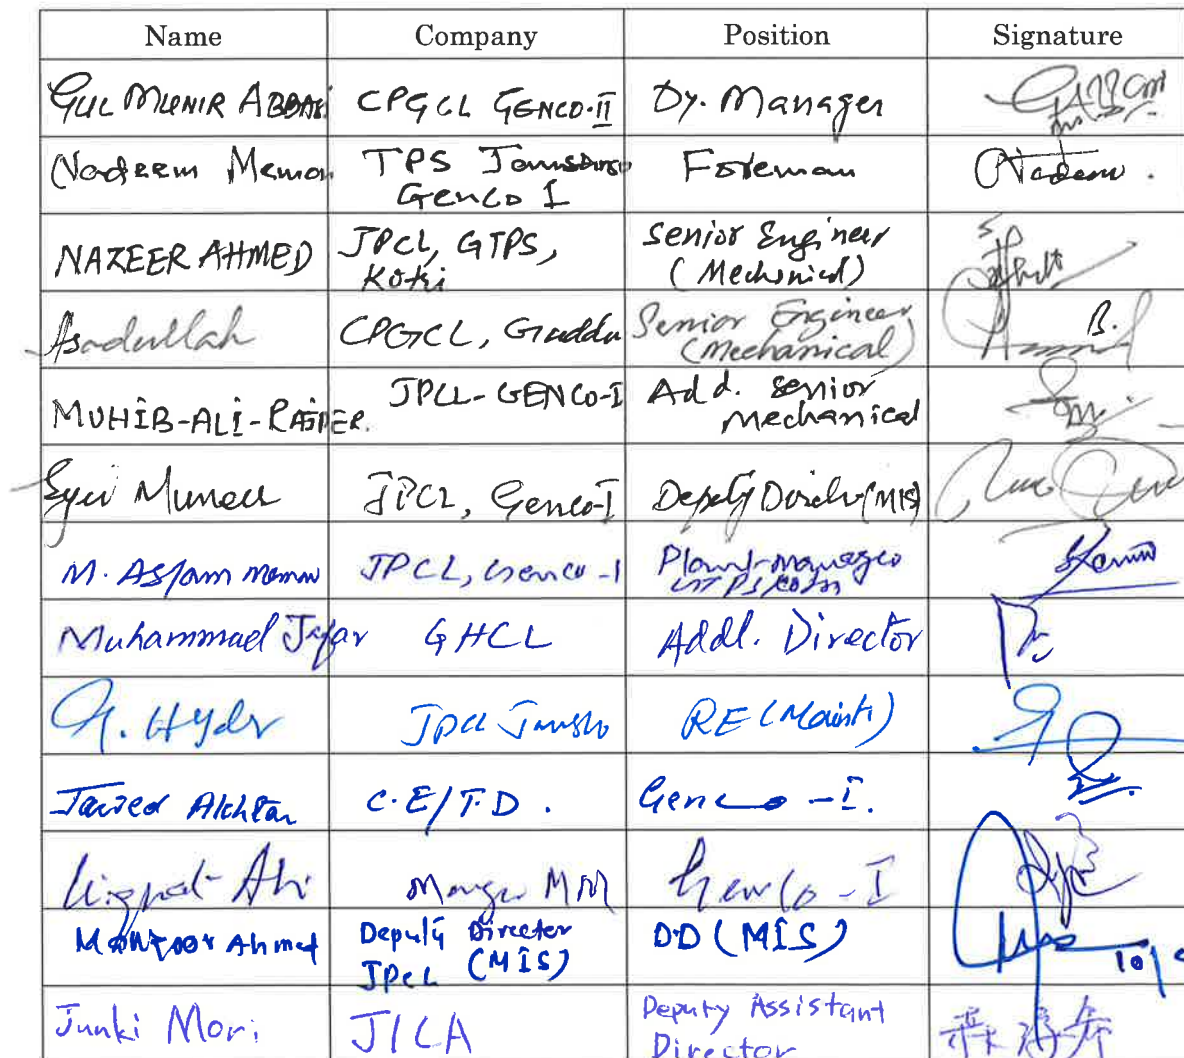 Name Company Position Signature
GUL MUNIR ABBASI CPGCL GENCO-II Dy. Manager
Nadeem Memon TPS Jamshoro Foreman Nadeem.
Genco I
NAZEER AHMED JPCL, GTPS, Senior Engineer
Kotri (Mechanical)
Asadullah CPGCL, Guddu Senior Engineer
(Mechanical)
MUHIB-ALI-RAJPER. JPCL-GENCO-I Add. Senior
Mechanical
Muneer JPCL, Genco-I Deputy Director (MIS)
M. Aslam Memon JPCL, Genco-I Plant Manager
GTPS
Muhammad Jafar GHCL Addl. Director
G. Hyder JPCL RE (Maint)
Javed Akhtar C.E/T.D. Genco-I.
Liaquat Ali Manager MM Genco-I
Manzoor Ahmed Deputy Director DD (MIS)
JPCL (MIS) 10/
Junki Mori JICA Deputy Assistant
Director